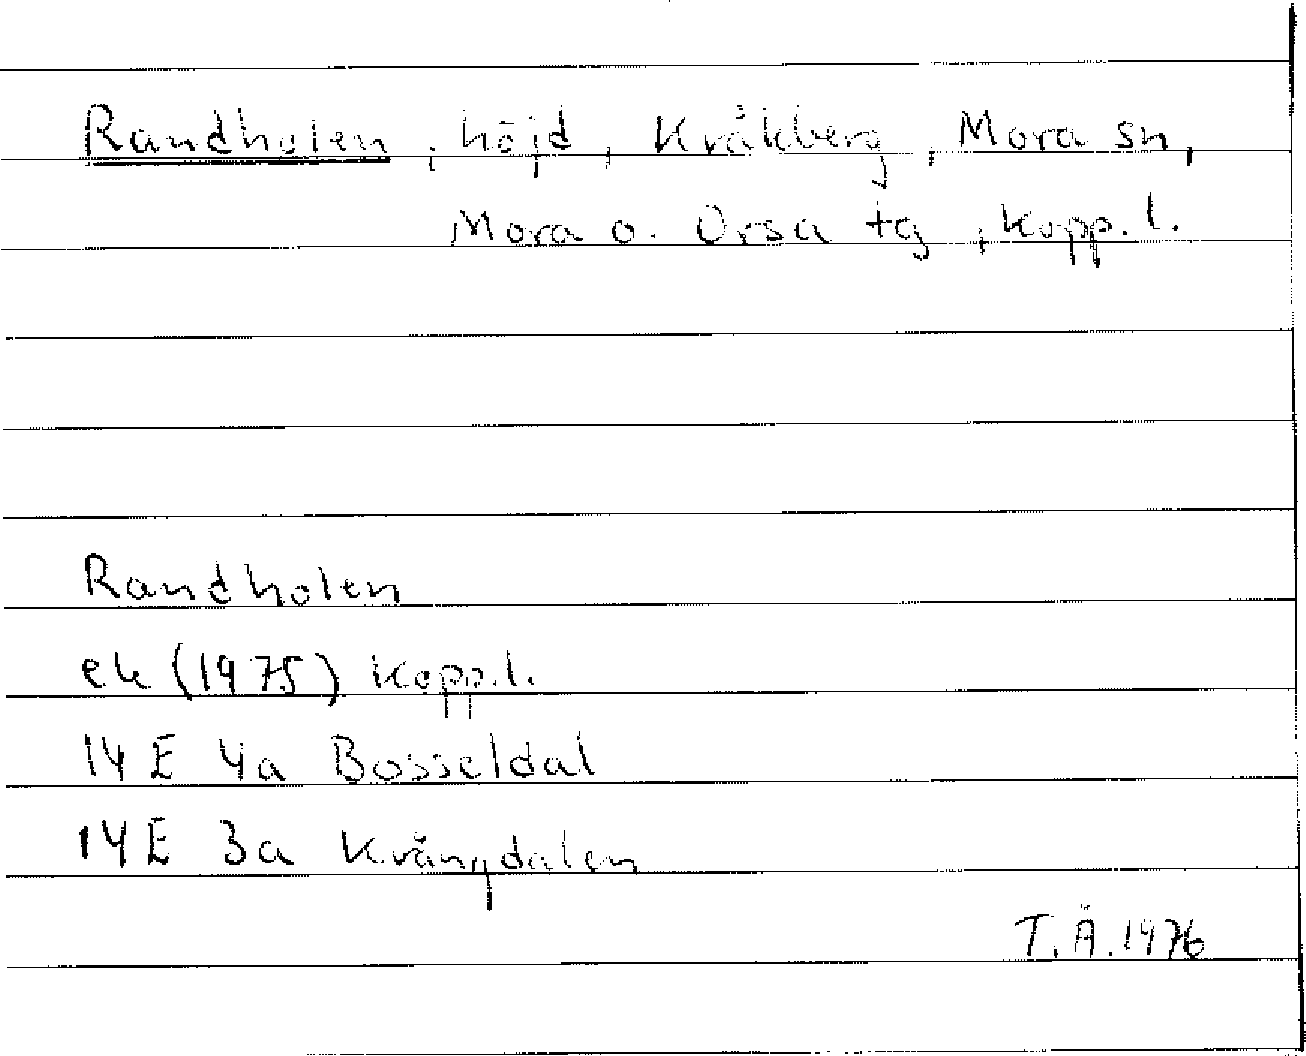 Randholen, höjd, Kråkberg, Mora sn,
Mora o. Orsa tg, Kopp. l.
Randholen
ek (1975) Kopp. l.
14 E 4a Bosseldal
14 E 3a Krångdalen
T. Å. 1976